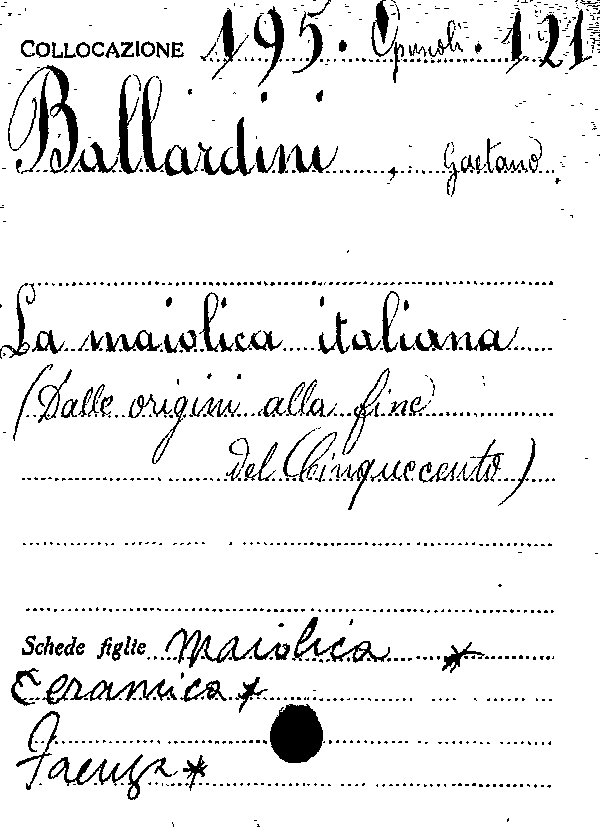 COLLOCAZIONE 195. Opuscoli. 121
Ballardini, Gaetano.
La maiolica italiana
(Dalle origini alla fine
del Cinquecento)
Schede figlie Maiolica *
Ceramica *
Faenza *